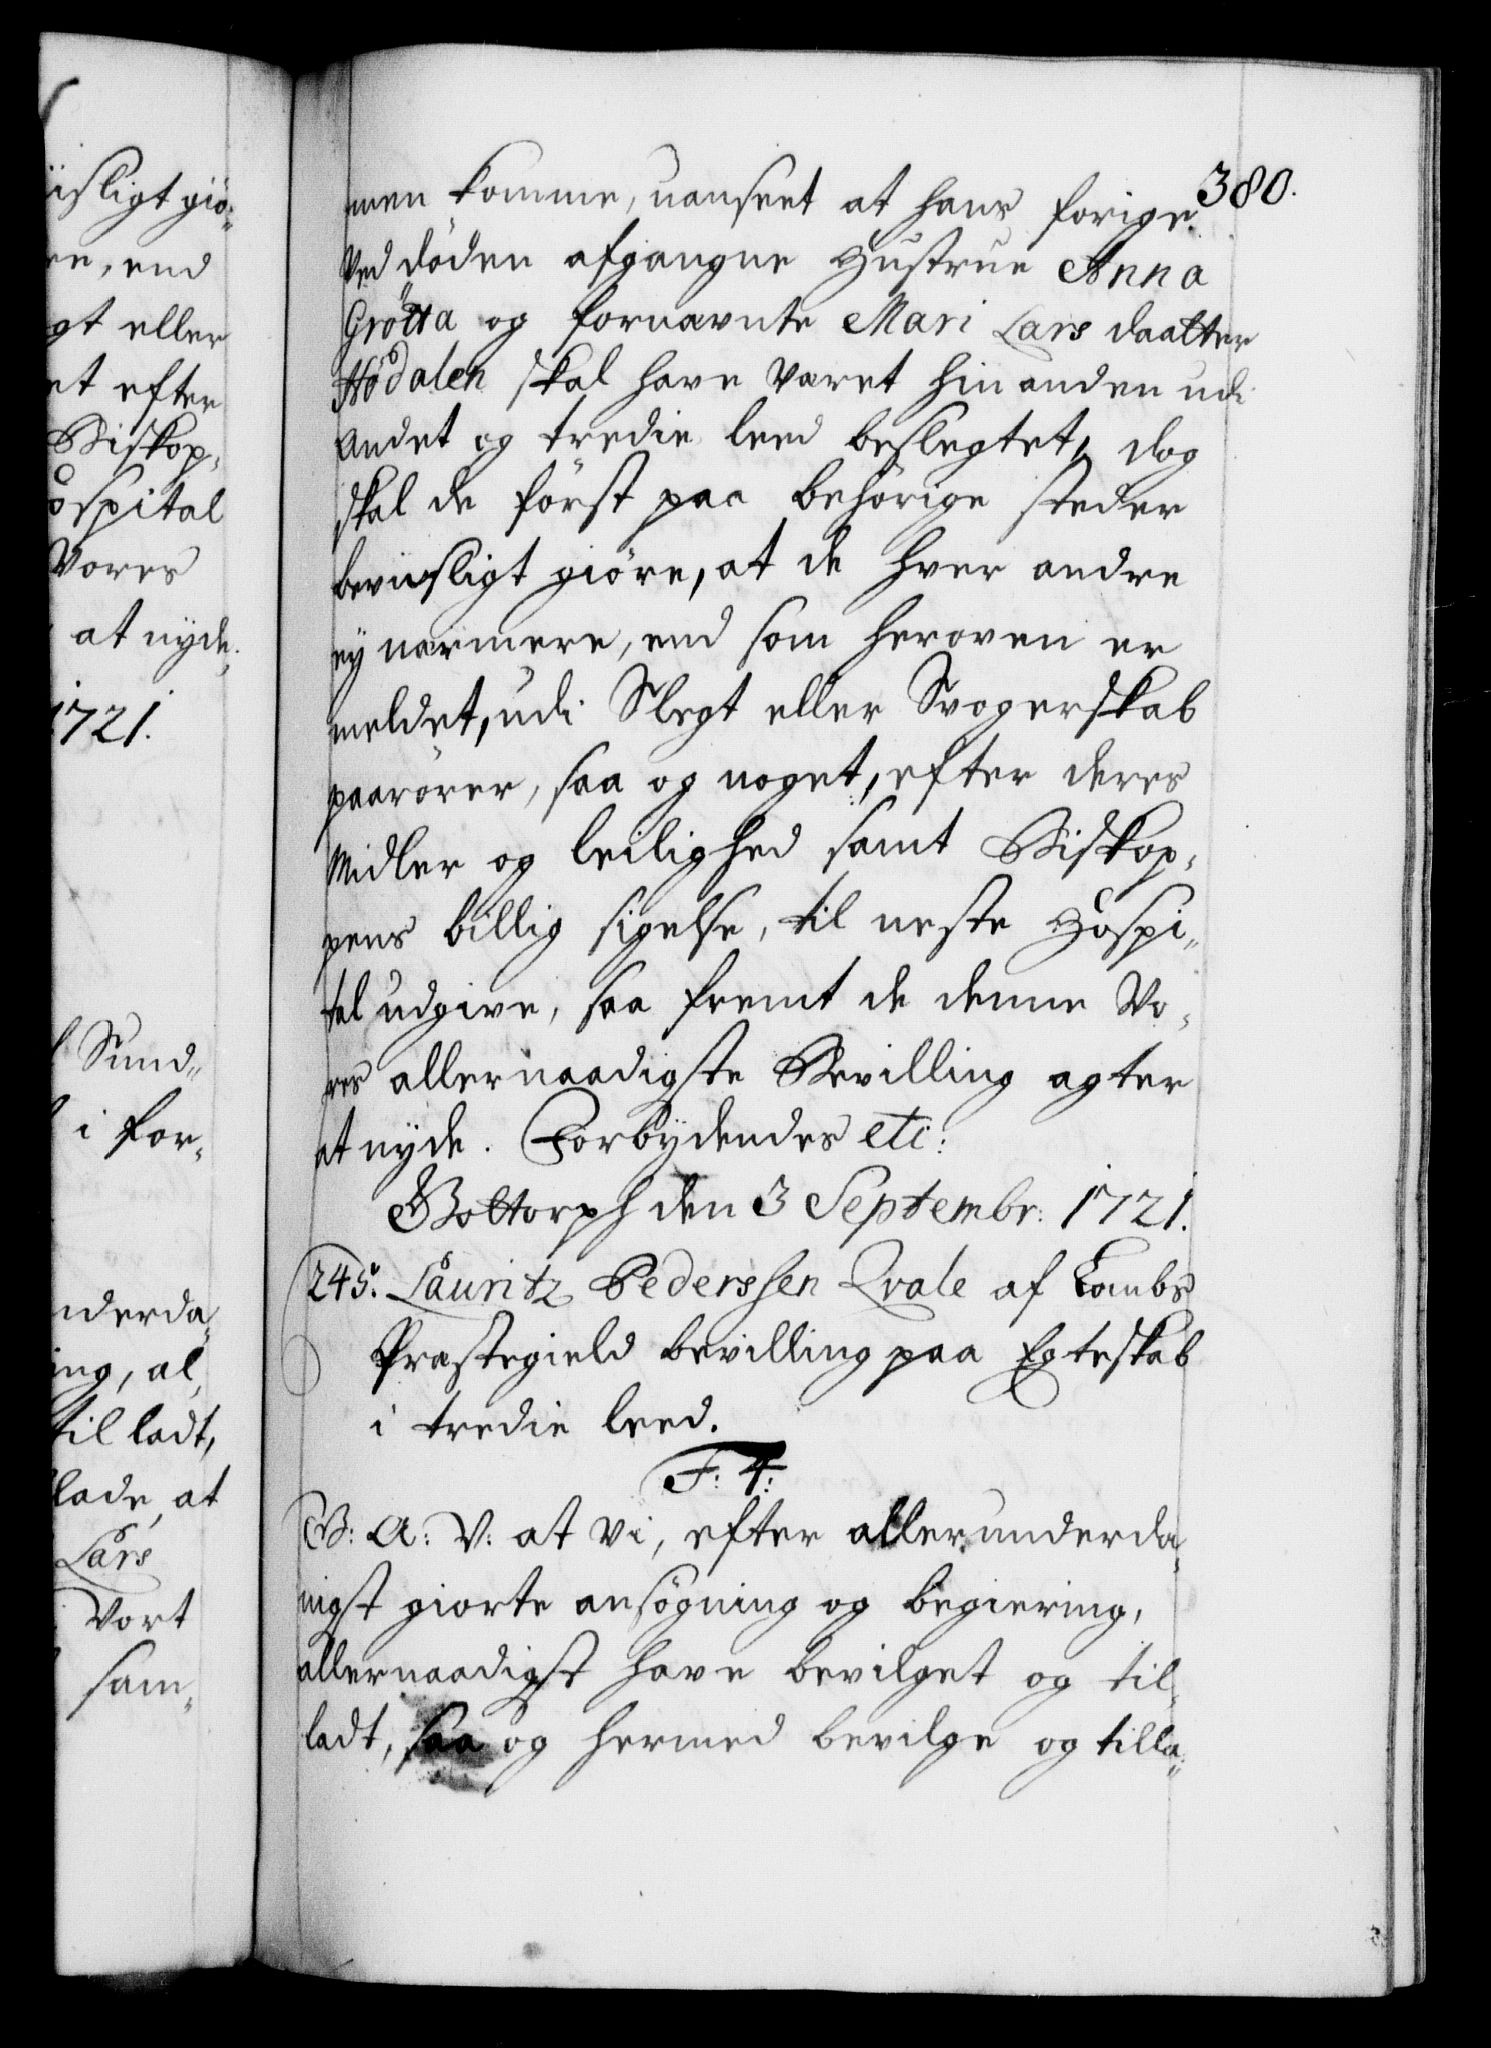 iisligt giö-
re, end
gt eller
et efter
Biskop-
ospital
Vores
at nyde.
1721.
Sund-
i for-
nderda-
ing, al-
til ladt,
lade, at
Lars
Vort
sam-
380.
men komme, uanseet at hans forige
ved döden afgangne Hustrue Anna
Grötta og fornævnte Mari Lars daatter
Hödalen skal have været hinanden udi
andet og tredie leed beslegtet, dog
skal de först paa behörige steder
beviisligt giöre, at de hver andre
ey nærmere, end som heroven er
meldet, udi Slegt eller Svogerskab
paarörer, saa og noget, efter deres
Midler og leilighed samt Biskop-
pens billig sigelse, til neste Hospi-
tal udgive, saa fremt de denne Vo-
res allernaadigste Bevilling agter
at nyde. Forbydendes etc:
Gottorph den 3 Septembr: 1721.
245. Lauritz Pederssen Qvale af Lombs
Præstegield bevilling paa Egteskab
i tredie leed.
F: 4:
G: A: V: at Vi, efter allerunderda-
nigst giorte ansögning og begiering,
allernaadigst have bevilget og til-
ladt, saa og hermed bevilge og tilla-